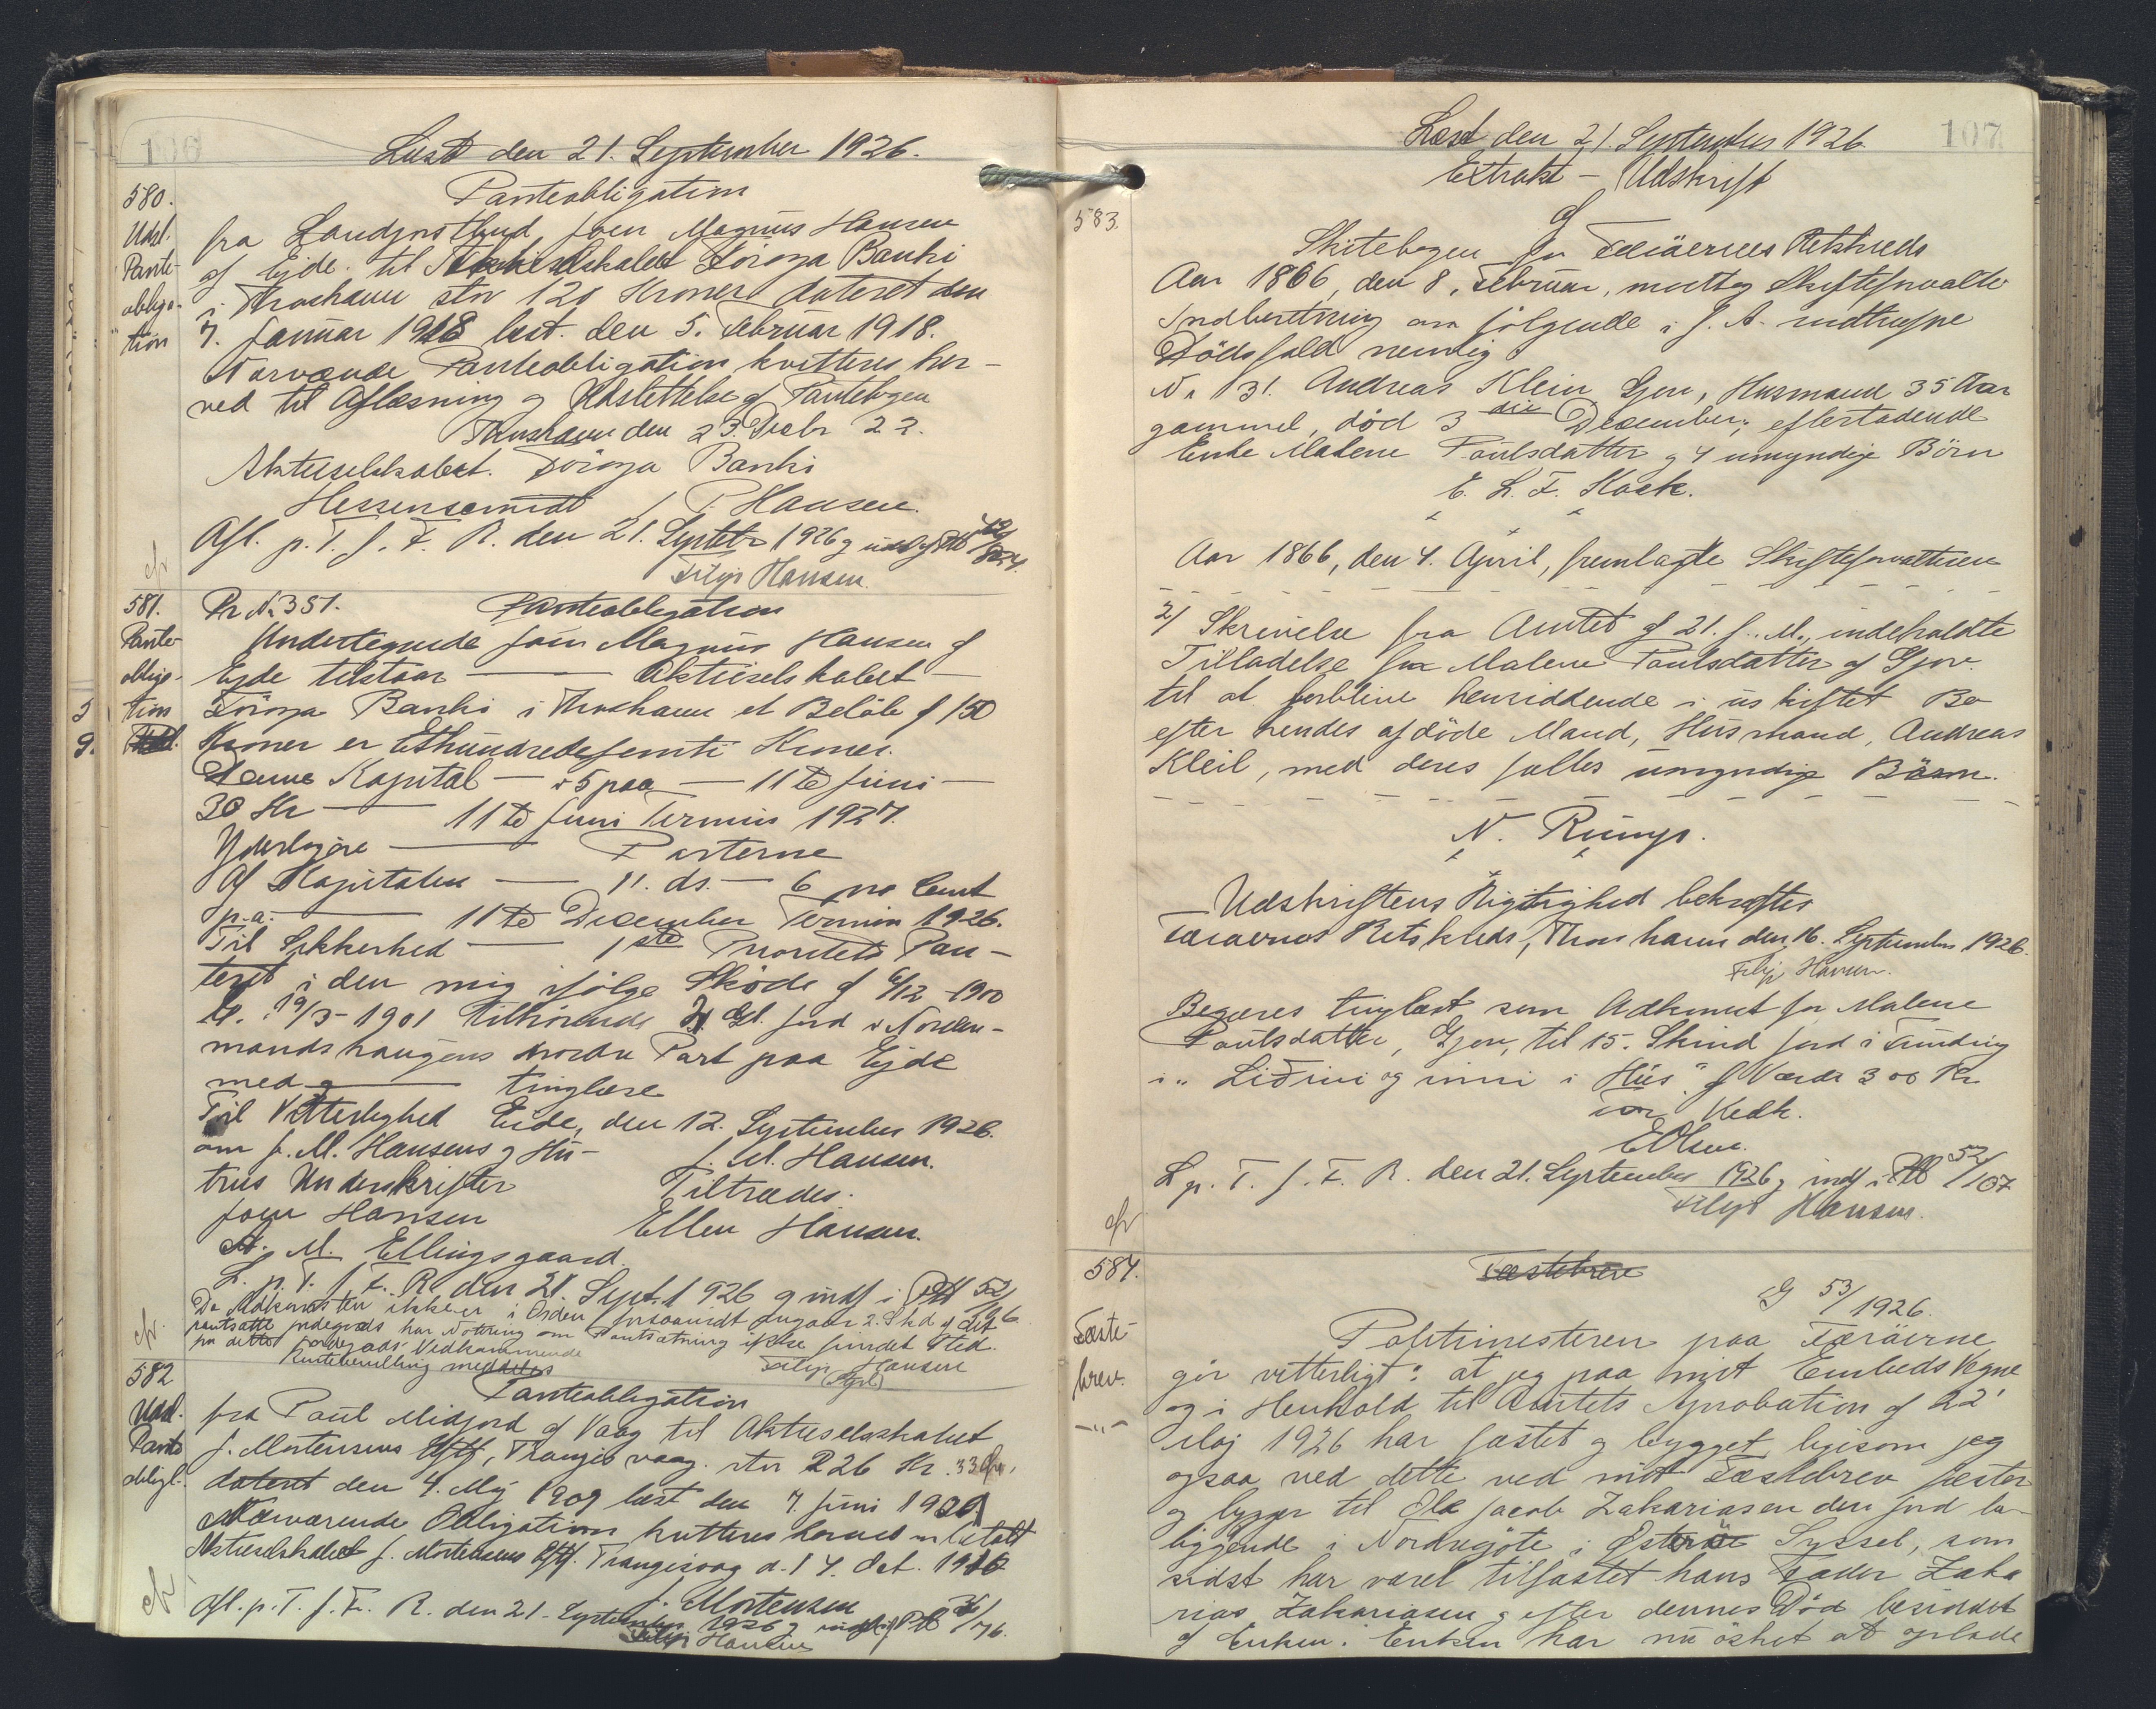 106
Læst den 21. September 1926.
580.
Udsl.
Pante-
obliga-
tion
Panteobligation
fra Landpostbud Joen Magnus Hansen
af Ejde til Aktieselskabet Föroya Banki
i Thorshavn stor 120 Kroner dateret den
7. Januar 1918 læst den 5. Februar 1918.
Nærværende Panteobligation kvitteres her-
ved til Aflæsning og Udslettelse af Pantebogen
Thorshavn den 23. Decbr 22.
Aktieselskabet Föroya Banki
P. Hansen.
Afl. p. T. f. F. R. den 21. Septbr 1926 og udsl af Ptb
Filip Hansen.
581.
Pante-
obliga-
tion
Pr No 351.
Panteobligation
Undertegnede Join Magnus Hansen af
Ejde tilstaar — Aktieselskabet —
Föroya Banki i Thorshavn et Beløb af 150
Kroner er Ethundredefemti Kroner.
Denne Kapital — + 5 paa — 11te Juni —
30 Kr — 11te Juni Termin 1927.
Yderligere — Parterne
Af Kapitalen — 11. ds. — 6 pro Cent
p.a. — 11te December Termin 1926.
Til Sikkerhed — 1ste Prioritets Pan-
teret i den mig ifølge Skøde af 6/12 1900
tl. 19/3-1901 tilhørende 2 Gl. Jord i Norden-
mandshaugens nordre Part paa Ejde
med — tinglæse
Til Vitterlighed Eide, den 12. September 1926.
om J. M. Hansens og Hu- J. M. Hansen.
trus Underskrifter Tiltrædes.
Joen Hansen Ellen Hansen.
A. M. Ellingsgaard.
L. p. T. f. F. R. den 21. Sept. 1926 og indf i Ptb 52/106
Da Adkomsten ikke er i Orden forsaavidt angaar 2 Skd af det
pantsatte Jordegods har Notering om Pantsætning ikke fundet Sted
for dette Jordegods Vedkommende
Rentebevilling meddeles
Filip Hansen
582
Udsl.
Pante
obligt.
Panteobligation
fra Poul Midjord af Vaag til Aktieselskabet
J. Mortensens Eftf, Trangisvaag stor 226 Kr. 33 Øre,
dateret den 4. Maj 1909 læst den 7. Juni 1909
Nærværende Obligation kvitteres hermed som betalt
Aktieselskabet J. Mortensens Eftf. Trangisvaag d. 14. Oct. 1910
J. Mortensen
Afl. p. T. f. F. R. den 21. September 1926 og udsl af Ptb 36/76.
Filip Hansen
107
Læst den 21. September 1926.
583.
Extrakt - Udskrift
af
Skiftebogen for Færöernes Retskreds
Aar 1866, den 8. Februar, modtog Skifteforvalte
Indberetning om følgende i f. A. indtrufne
Dödsfald nemlig
No 131. Andreas Klein Gjov, Husmand 35 Aar
gammel, død 3die December; efterladende
Enke Malene Poulsdatter og 4 umyndige Börn
E. L. F. Kock.
Aar 1866, den 4. April, fremlagde Skifteforvalteren
2/ Skrivelse fra Amtet af 21. f. M., indeholdte
Tilladelse for Malene Poulsdatter af Gjov
til at forblive hensiddende i uskiftet Bo
efter hendes afdöde Mand, Husmand, Andreas
Kleil, med deres fælles umyndige Börn.
N. Rump.
Udskriftens Rigtighed bekræftes
Færöernes Retskreds, Thorshavn den 16. September 1926.
Filip Hansen.
Begæres tinglæst som Adkomst for Malene
Poulsdatter, Gjov, til 15. Skind Jord i Funding
i „Lidini og inni i Hús" af Værdi 300 Kr
for Vedk.
E Olsen.
L p. T. f. F. R. den 21. September 1926 og indf i Ptb 52/107
Filip Hansen.
584.
Fæste-
brev.
Fæstebrev
G 53/1926.
Politimesteren paa Færöerne
gör vitterligt: at jeg paa mit Embeds Vegne
og i Henhold til Amtets Aprobation af 22'
Maj 1926 har fæstet og bygget, ligesom jeg
ogsaa ved dette ved mit Fæstebrev fæster
og bygger til Ole Jacob Zakariasen den Jord be-
liggende i Nordregöte i Österö Syssel, som
sidst har været tilfæstet hans Fader Zaka
rias Zakariasen og efter dennes Död besiddet
af Enken. Enken har nu ösket at oplade